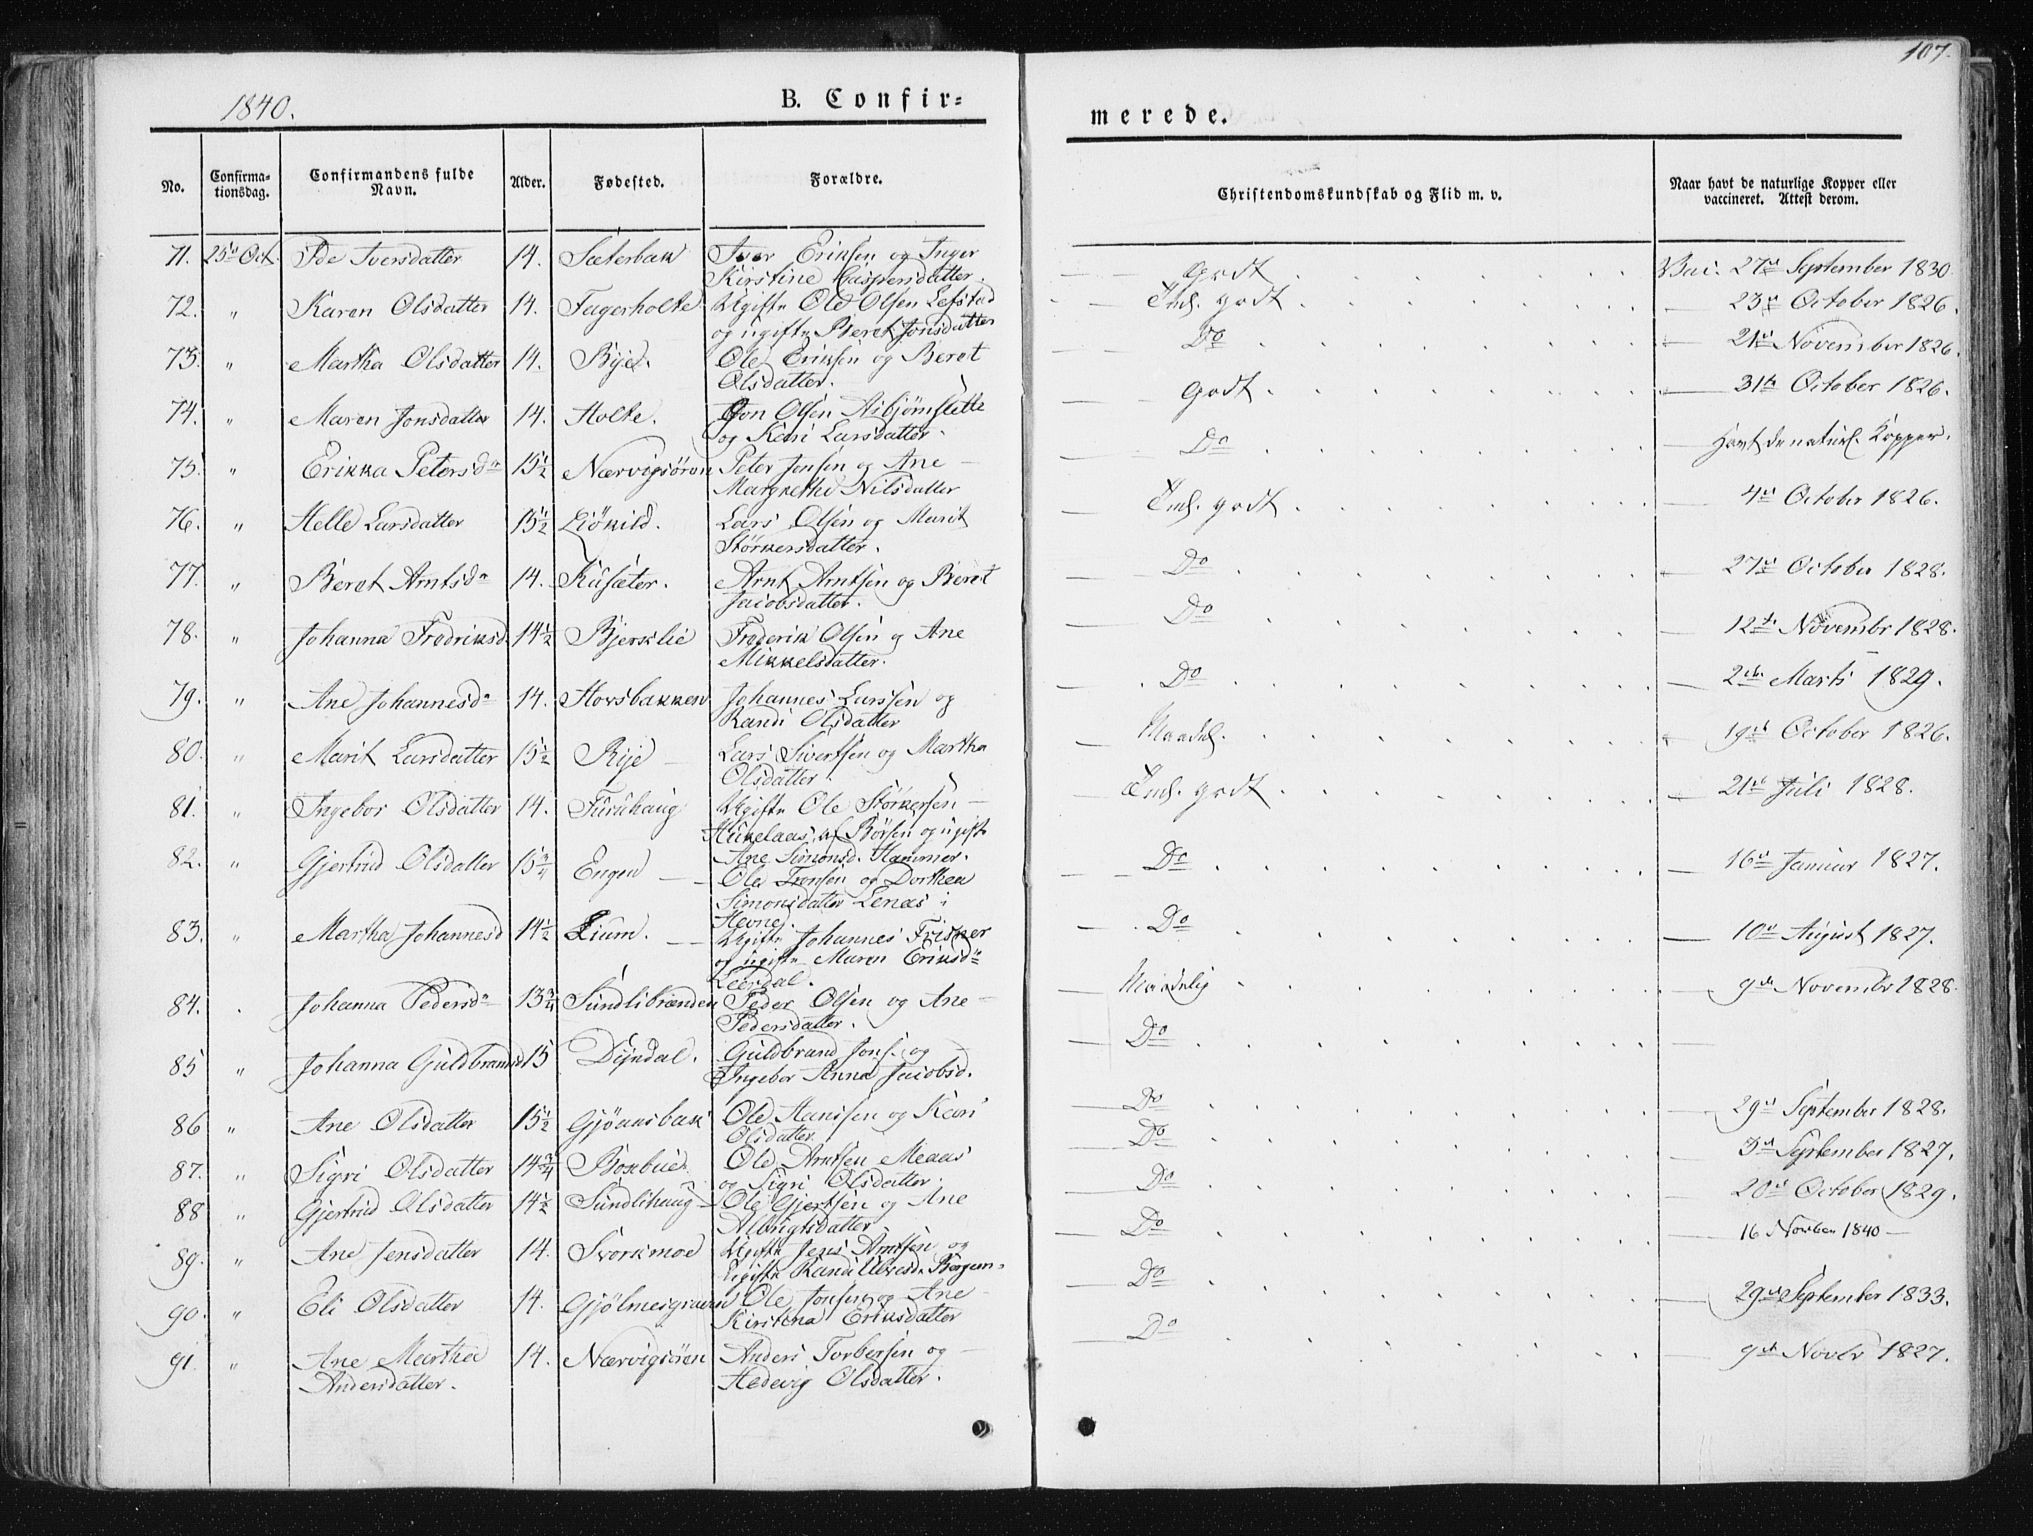 107.
1840.
B. Confir=
merede.
No. Confirma-tionsdag. Confirmandens fulde Navn. Alder. Fødested. Forældre. Christendomskundskab og Flid m. v. Naar havt de naturlige Kopper eller vaccineret. Attest derom.
71. 25de Oct. Ide Iversdatter 14. Sæterbak Iver Eriksen og Inger
Kirstine Caspersdatter. Godt Vac. 27de September 1830
72. " Karen Olsdatter 14. Fagerholte Ugifte Ole Olsen Lefstad
og ugifte Beret Jonsdatter Tml. godt 23de October 1826.
73. " Martha Olsdatter 14. Bye. Ole Eriksen og Beret
Olsdatter. Do 21de November 1826.
74. " Maren Jonsdatter 14. Holte. Jon Olsen Asbjørnslette
og Kari Larsdatter. Godt 31te October 1826.
75. " Erikka Petersdr 15½ Nærvigsøren Peter Jonsen og Ane
Margrethe Nilsdatter Do Havt de naturl. Kopper.
76. " Helle Larsdatter 15½ Liøkild. Lars Olsen og Marit
Størkersdatter. Tml. godt 4de October 1826.
77. " Beret Arntsdr 14. Kåsæter. Arnt Arntsen og Beret
Jacobsdatter. Do 27de October 1828.
78. " Johanna Fredriksd 14½ Bjerslie Frederik Olsen og Ane
Mikkelsdatter. Do 12te Novembr 1828.
79. " Ane Johannesdr 14. Hovsbakken Johannes Larssen og
Randi Olsdatter Do 2den Marts 1829.
80. " Marit Larsdatter 15½ Rije Lars Sivertsen og Martha
Olsdatter. Maadel. 19de October 1826.
81. " Ingebor Olsdatter 14. Furuhaug Ugifte Ole Størkersen
af Børsen og ugifte
Ane Simonsd. Hammer. Tml. godt 21de Juli 1828.
82. " Gjertrud Olsdatter 15¾ Engen Ole Tronsen og Dorthea
Simonsdatter Lenæs i
Hevne. Do 16de Januar 1827.
83. " Martha Johannesd 14½ Lium. Ugifte Johannes Frisper
og ugifte Maren Eriksdr
Leerdal. Do 10de August 1827.
84. Johanna Pedersdr 13¾ Sundlibrænden Peder Olsen og Ane
Pedersdatter. Maadelig 9de Novembr 1828
85 " Johanna Guldbrandsd 15 Dyndal. Guldbrand Jons. og
Ingebor Anna Jacobsd. Do
86 " Ane Olsdatter 15½ Gjønnsbak Ole Hanssen og Kari
Olsdatter Do 29de September 1828.
87. " Sigri Olsdatter 14¾ Bosbue Ole Arntsen Meaas
og Sigri Olsdatter. Do 3de September 1827.
88 " Gjertrud Olsdatter 14½ Sundlihaug Ole Gjertsen og Ane
Albrigtsdatter Do 20de October 1829.
89. " Ane Jensdatter 14. Svorkmoe Ugifte Jens Arntsen og
Ugifte Randi Bergum Do 16 Novber 1840
90. " Eli Olsdatter 14. Gjølmesgraven Ole Jonsen og Ane
Kirstina Eriksdatter Do 29de September 1833.
91. " Ane Martha
Andersdatter. 14. Nærvigsøren Anders Torbersen og
Hedevig Olsdatter. Do 9de Novbr 1827.